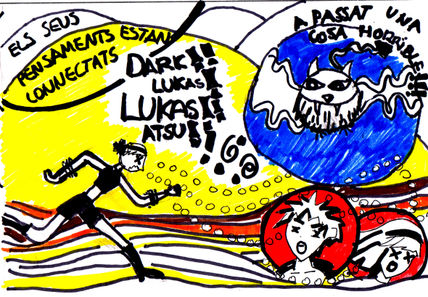 ELS SEUS
PENSAMENTS ESTAN
CONNECTATS
DARK!!
LUKAS!
LUKAS!!
ATSU!!
A PASSAT UNA
COSA HORRIBLE!!!